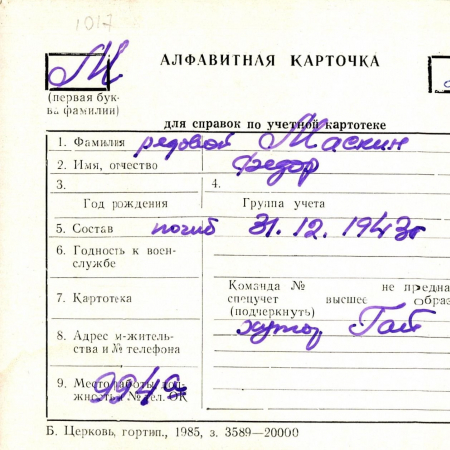 1017
М
АЛФАВИТНАЯ КАРТОЧКА
(первая бук-
ва фамилии)
для справок по учетной картотеке
1. Фамилия рядовой Маскин
2. Имя, отчество Федор
3. 4.
Год рождения Группа учета
5. Состав погиб 31.12.1943г
6. Годность к воен-
службе
Команда № не предна
7. Картотека спецучет высшее образ
(подчеркнуть)
8. Адрес м-житель- хутор Гай
ства и № телефона
9. Место работы, дол-
жность и № тел. ОК
Б. Церковь, гортип., 1985, з. 3589—20000